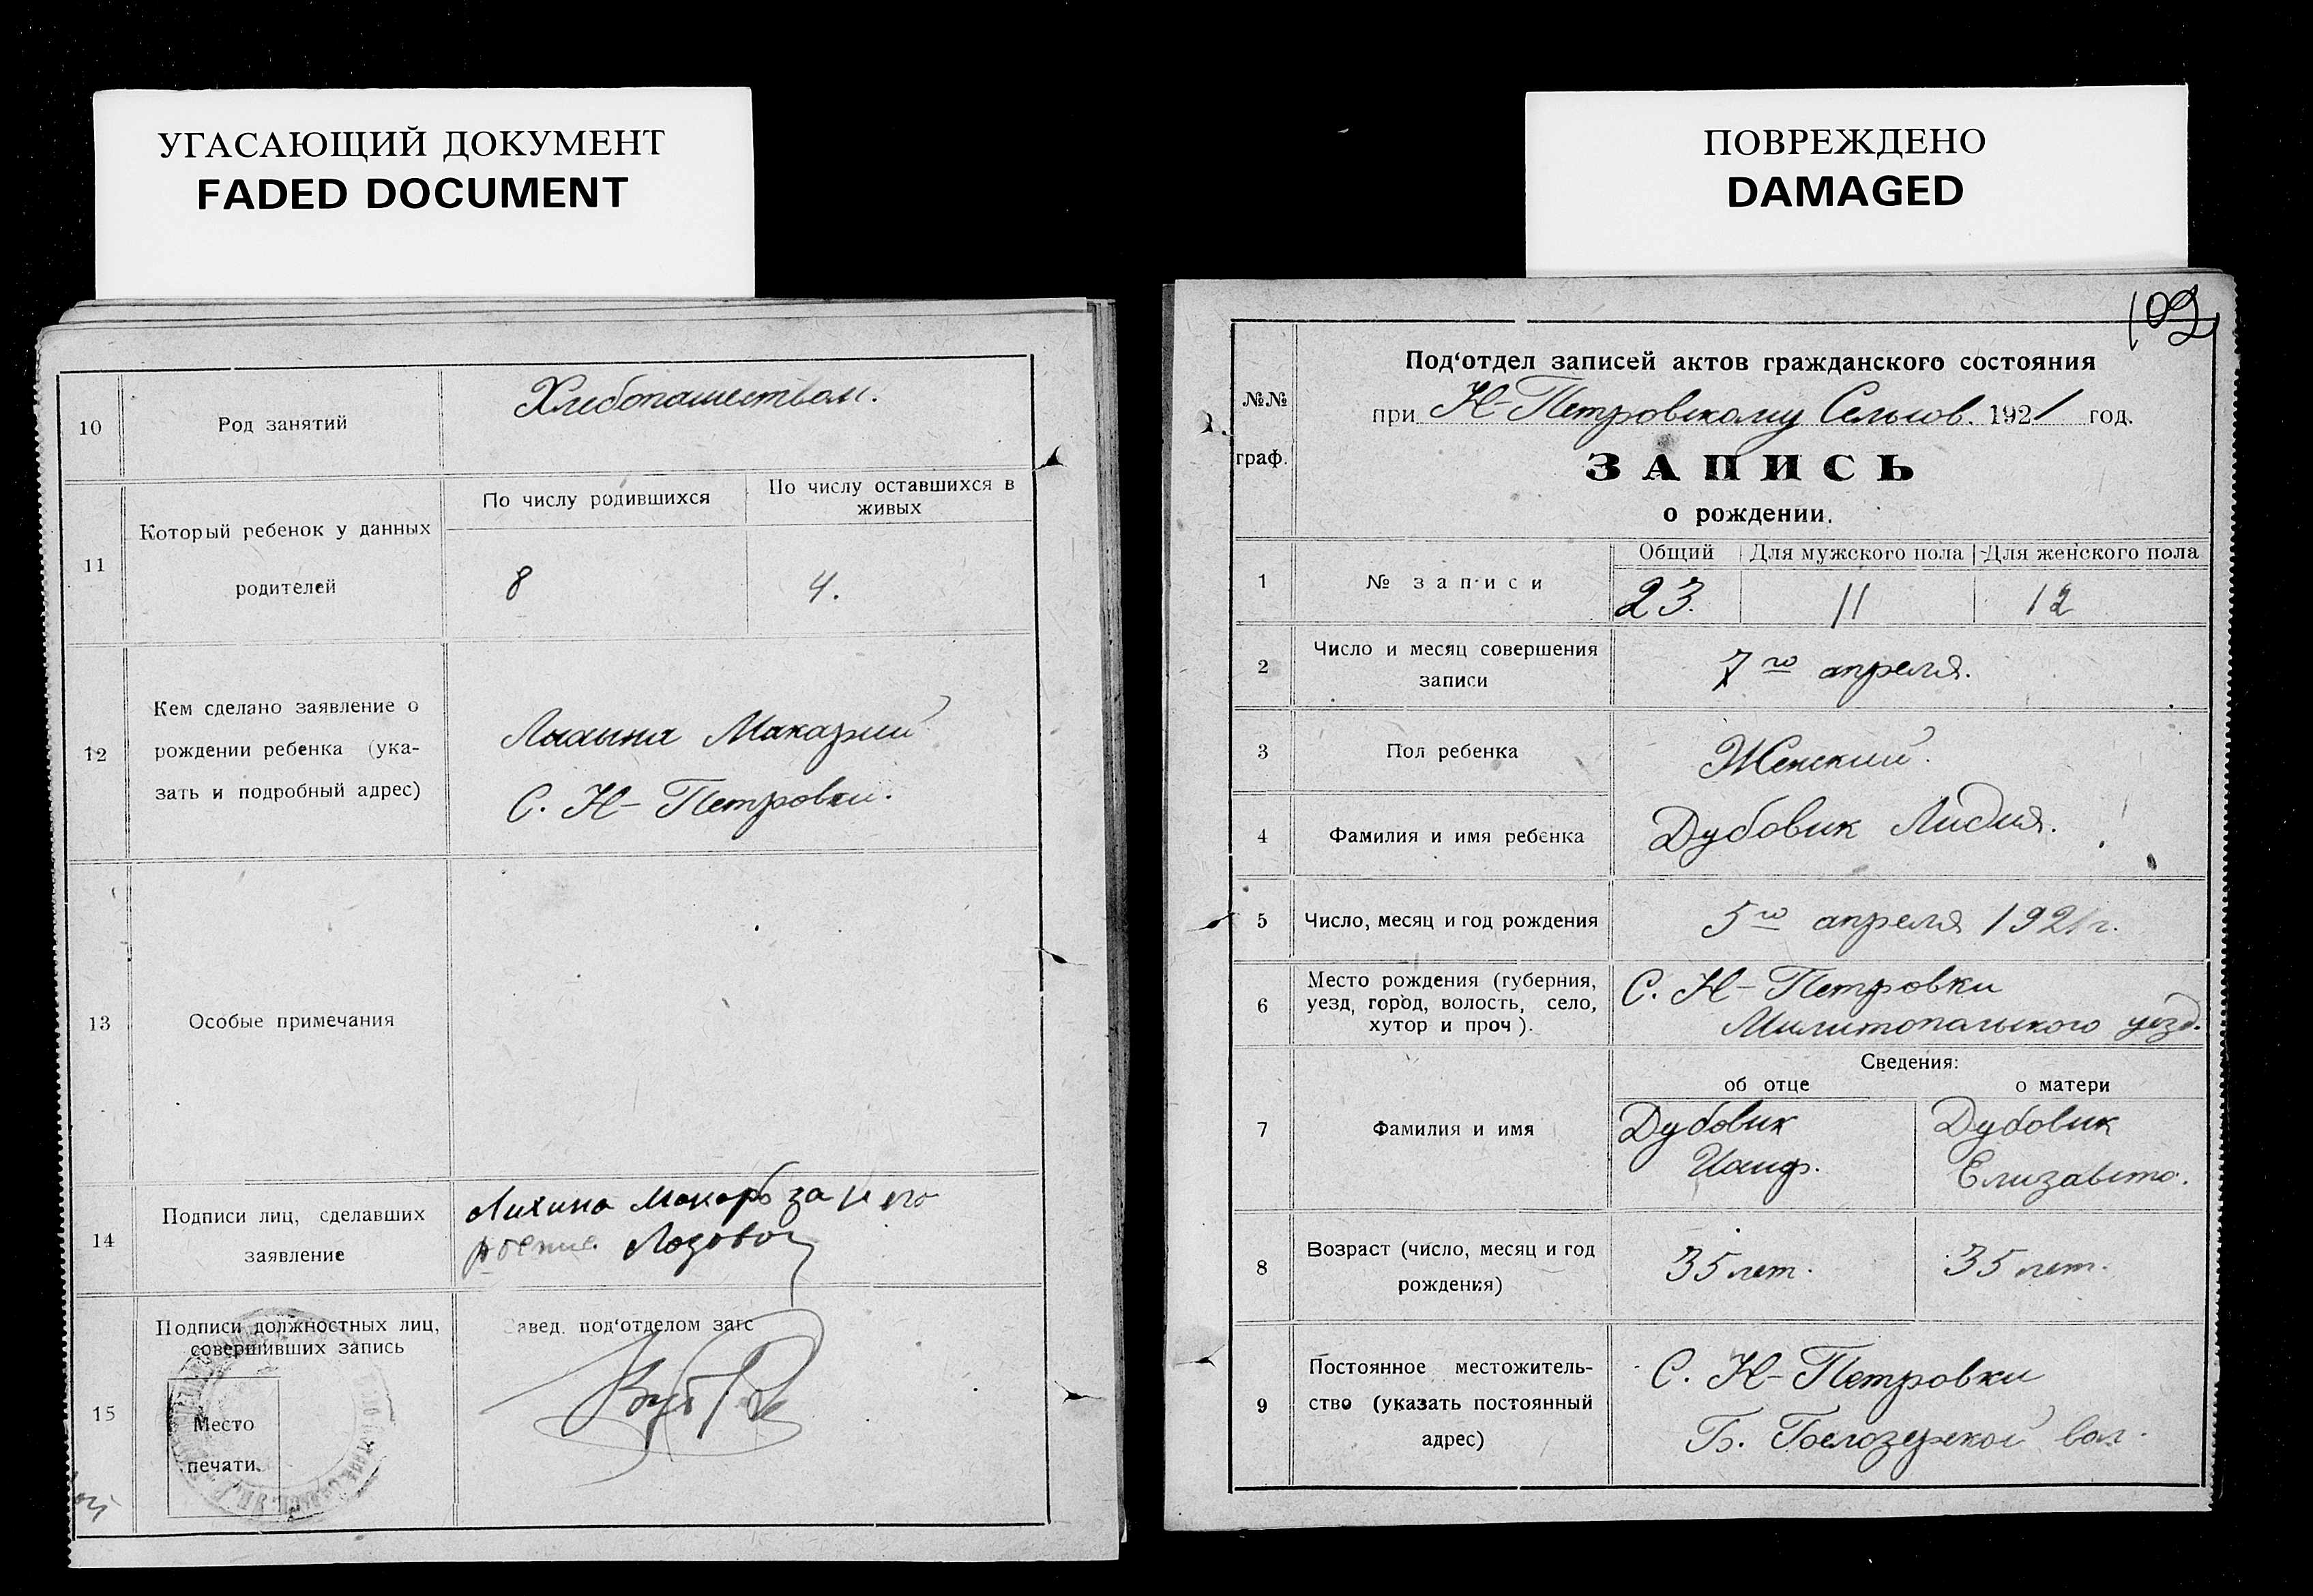 УГАСАЮЩИЙ ДОКУМЕНТ
FADED DOCUMENT
10
Род занятий
Хлебопашеством.
11
Который ребенок у данных
родителей
По числу родившихся
По числу оставшихся в
живых
8
4.
12
Кем сделано заявление о
рождении ребенка (ука-
зать и подробный адрес)
Макарий
С. Н-Петровки.
13
Особые примечания
14
Подписи лиц, сделавших
заявление
Лихина Макарь за него
Лозовой
15
Подписи должностных лиц,
совершивших запись
Место
печати.
Завед. под‘отделом загс
ПОВРЕЖДЕНО
DAMAGED
109
№№
граф.
Под‘отдел записей актов гражданского состояния
при Н-Петровскому Сельсов. 1921 год.
ЗАПИСЬ
о рождении.
1
№ записи
Общий
Для мужского пола
Для женского пола
23.
11
12
2
Число и месяц совершения
записи
7го апреля.
3
Пол ребенка
Женский.
4
Фамилия и имя ребенка
Дубовик Лидия.
5
Число, месяц и год рождения
5го апреля 1921 г.
6
Место рождения (губерния,
уезд, город, волость, село,
хутор и проч).
С. Н-Петровки
Милитопальского уезд.
7
Фамилия и имя
Сведения:
об отце
о матери
Дубовик
Дубовик
Елизавета.
8
Возраст (число, месяц и год
рождения)
35 лет.
35 лет.
9
Постоянное местожитель-
ство (указать постоянный
адрес)
С. Н-Петровки
Б. Белозерской вол.